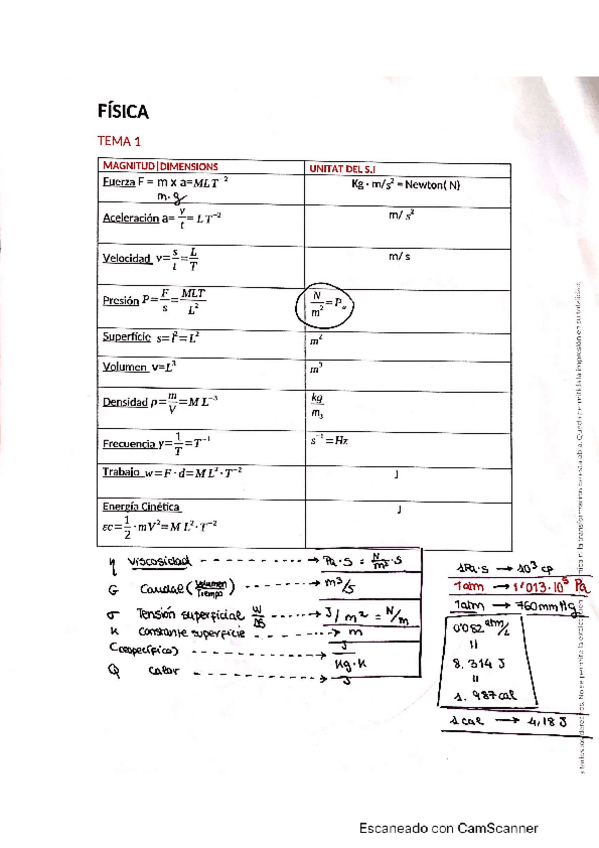 FÍSICA
TEMA 1
MAGNITUD|DIMENSIONS UNITAT DEL S.I
Fuerza F = m x a=MLT⁻² Kg · m/s² = Newton( N)
m·g
Aceleración a= v/t = LT⁻² m/ s²
Velocidad v= s/t = L/T m/ s
Presión P= F/s = MLT/L² N/m² =Pa
Superficie s=l²=L² m²
Volumen v=L³ m³
Densidad ρ= m/V =M L⁻³ kg/m₃
Frecuencia γ= 1/T =T⁻¹ s⁻¹=Hz
Trabajo w=F·d=M L²·T⁻² J
Energía Cinética J
εc= 1/2 ·mV²=M L²·T⁻²
η Viscosidad -------→ Pa·s = N/m² ·s
G Caudal (Volumen/Tiempo) -------→ m³/s
σ Tensión superficial W/ΔS ----→ J/m² = N/m
K Constante superficie ------→ m
C(específico) -------→ J/Kg·K
Q Calor -------→ J
1Pa·s → 10³ cp
1atm → 1'013·10⁵ Pa
1atm → 760mmHg
0'082 atm/L
=
8.314 J
=
1.987cal
1cal → 4,18 J
Escaneado con CamScanner